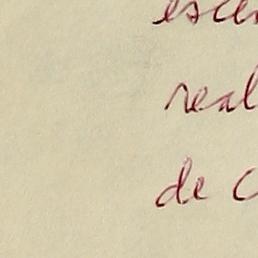 esce
real
de c